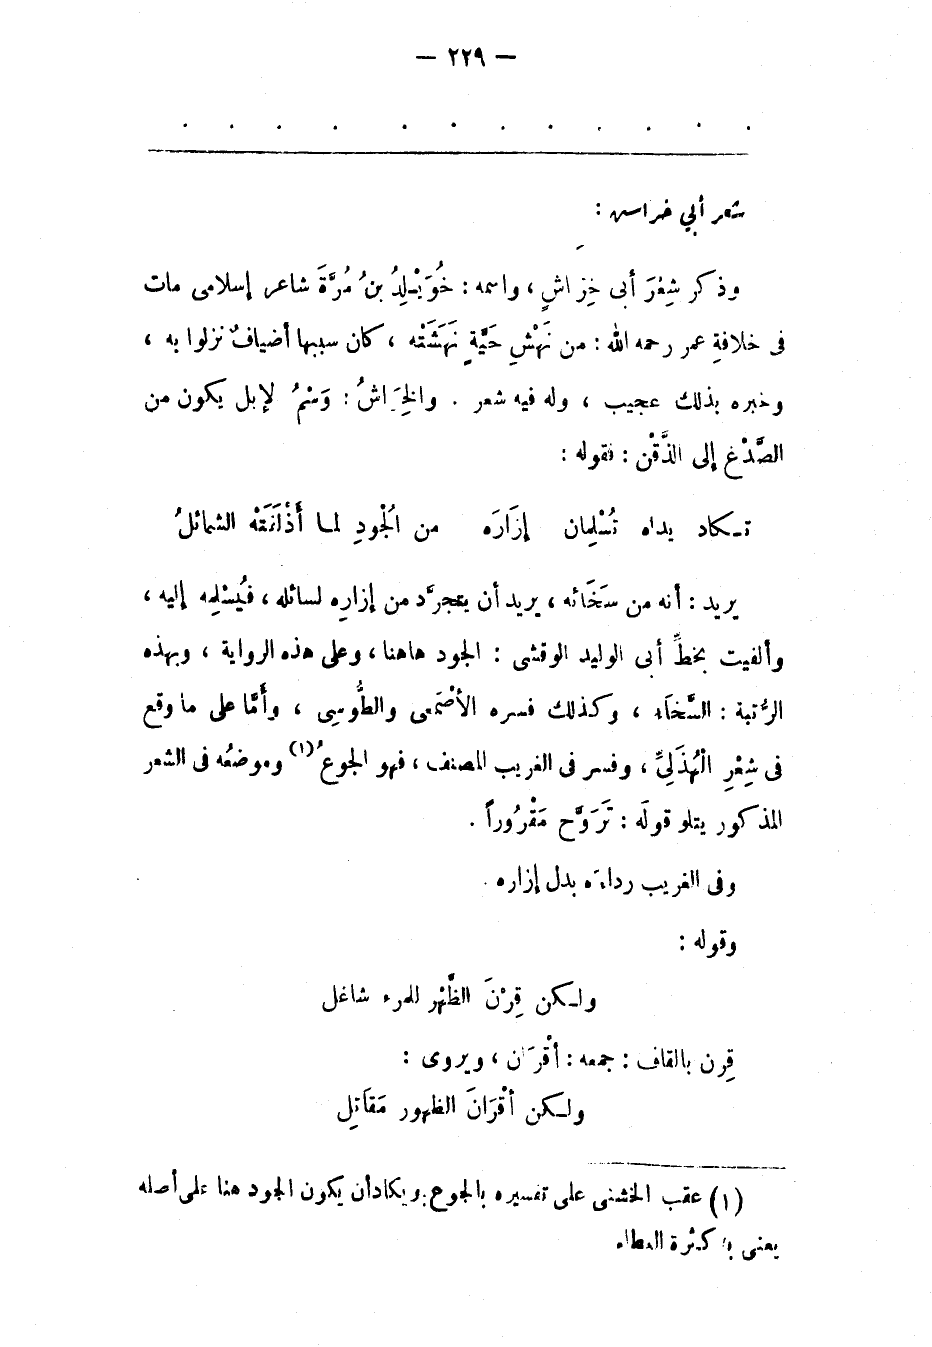 — ٢٢٩ —
. . . . . . . . . . . .
شعر أبي خراس :
وذكر شِعْرَ أبى خِرَاشٍ ، واسمه : خُوَيْلِدُ بنُ مُرَّةَ شاعر إسلامى مات
فى خلافةِ عمر رحمه الله : من نَهْشِ حَيَّةٍ نَهَشَتْه ، كان سببها أضيافٌ نزلوا به ،
وخبره بذلك عجيب ، وله فيه شعر . والخِرَاشُ : وَسْمٌ لإبل يكون من
الصُّدْغ إلى الذَّقْن : فقوله :
تـكاد يداه تُسْلِمان إزَارَه من الْجُودِ لمـا أَذْلَقَتْه الشمائلُ
يريد : أنه من سَخَائه ، يريد أن يتجرَّد من إزارِه لسائله ، فيُسْلِمه إليه ،
وألفيت بخطِّ أبى الوليد الوقشى : الجود هاهنا ، وعلى هذه الرواية ، وبهذه
الرُّتبة : السَّخَاء ، وكذلك فسره الأصْمَعى والطُّوسِى ، وأَمَّا على ما وقع
فى شِعْرِ الْهُذَلِىِّ ، وفسر فى الغريب المصنف ، فهو الجوعُ (١) وموضعُه فى الشعر
المذكور يتلو قولَه : تَرَوَّح مَقْرُوراً .
وفى الغريب رداءَه بدل إزاره .
وقوله :
ولـكن قِرْنَ الظَّهْر للمرء شاغل
قِرن بالقاف : جمعه : أقْرَان ، ويروى :
ولـكن أقْرَانَ الظهور مَقَاتِل
(١) عقب الخشنى على تفسيره بالجوع : ويكاد أن يكون الجود هنا على أصله
يعنى به كثرة العطاء